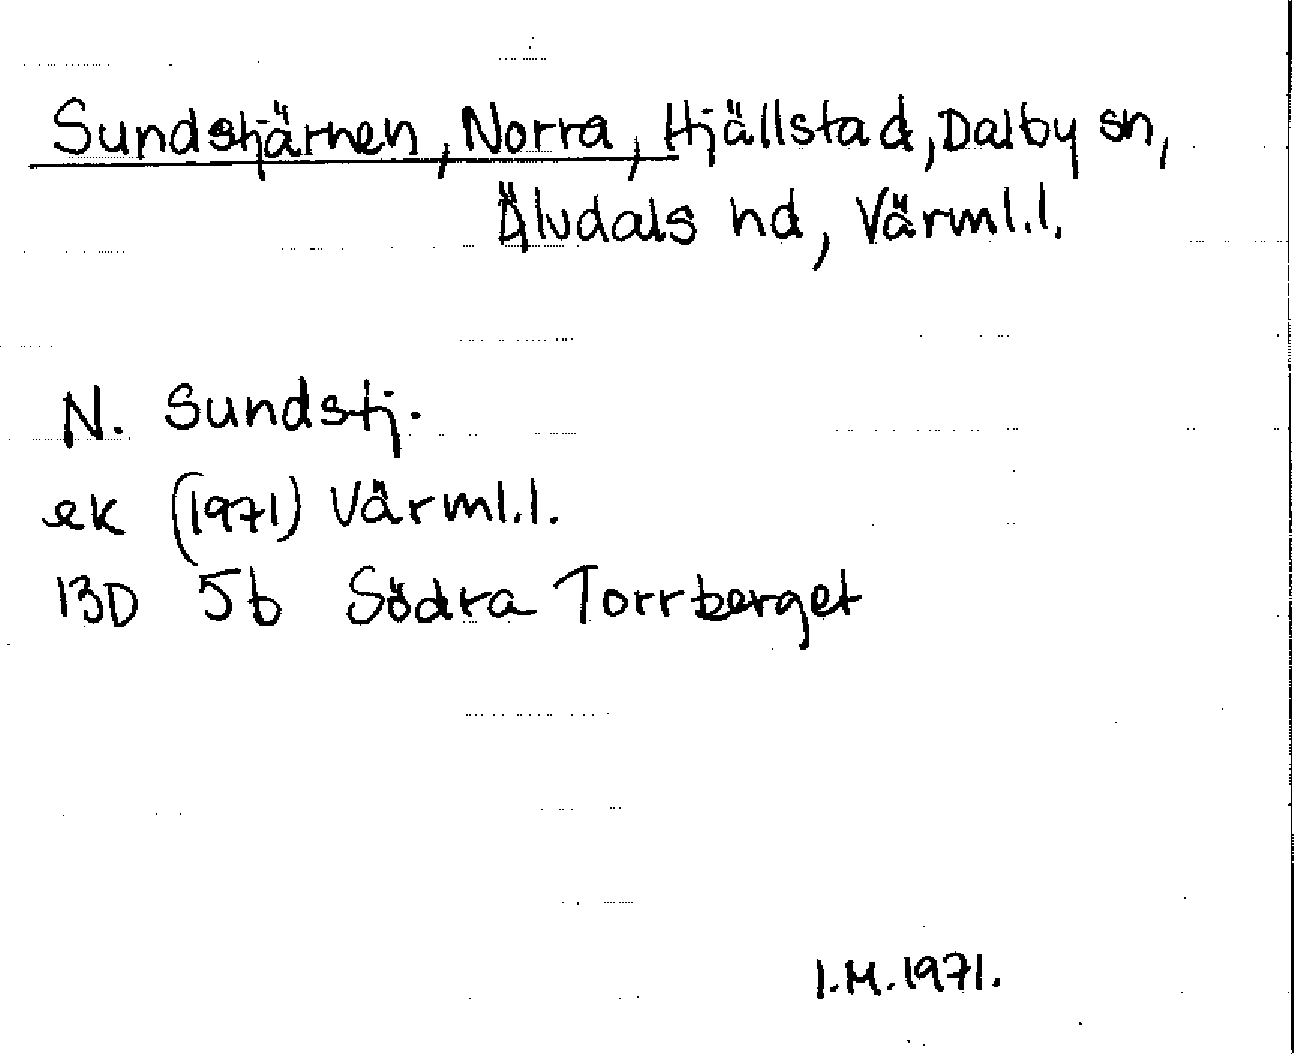 Sundstjärnen, Norra, Hjällstad, Dalby sn,
Älvdals hd, Värml.l.
N. Sundstj.
ek (1971) Värml.l.
13D 5b Södra Torrberget
I.M.1971.